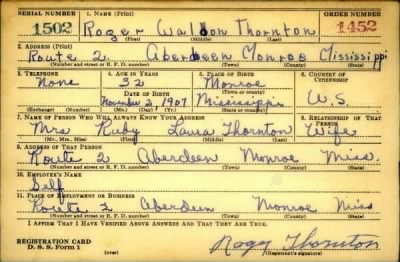 SERIAL NUMBER 1. NAME (Print) ORDER NUMBER
1502 Roger Waldon Thornton 1452
(First) (Middle) (Last)
2. ADDRESS (Print)
Route 2. Aberdeen Monroe Mississippi
(Number and street or R. F. D. number) (Town) (County) (State)
3. TELEPHONE 4. AGE IN YEARS 5. PLACE OF BIRTH 6. COUNTRY OF CITIZENSHIP
None 32 Monroe
DATE OF BIRTH (Town or county)
November 2, 1907 Mississippi U.S.
(Exchange) (Number) (Mo.) (Day) (Yr.) (State or country)
7. NAME OF PERSON WHO WILL ALWAYS KNOW YOUR ADDRESS 8. RELATIONSHIP OF THAT PERSON
Mrs Ruby Laura Thornton Wife
(Mr., Mrs., Miss) (First) (Middle) (Last)
9. ADDRESS OF THAT PERSON
Route 2 Aberdeen Monroe Miss.
(Number and street or R. F. D. number) (Town) (County) (State)
10. EMPLOYER'S NAME
Self
11. PLACE OF EMPLOYMENT OR BUSINESS
Route 2 Aberdeen Monroe Miss
(Number and street or R. F. D. number) (Town) (County) (State)
I AFFIRM THAT I HAVE VERIFIED ABOVE ANSWERS AND THAT THEY ARE TRUE.
REGISTRATION CARD
D. S. S. Form 1 (over) Thornton
(Registrant's signature)